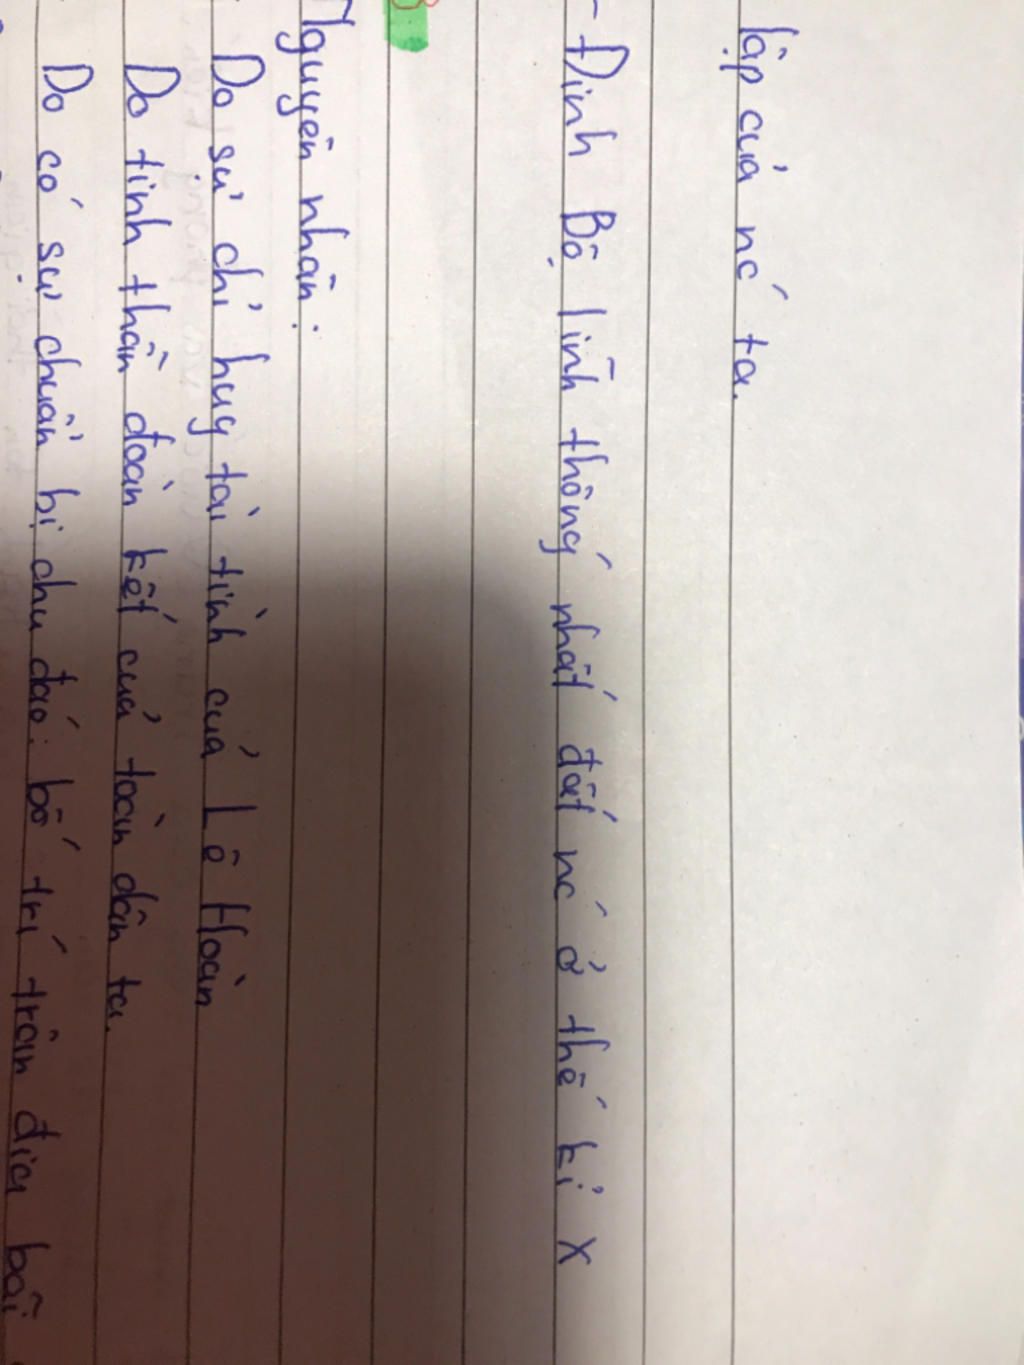 lập của nć ta.
- Đinh Bộ lĩnh thống nhất đất nć ở thế kỉ X
Nguyên nhân:
Do sự chỉ huy tài tình của Lê Hoàn
Do tinh thần đoàn kết của toàn dân ta.
Do có sự chuẩn bị chu đáo: bố trí trân địa bãi